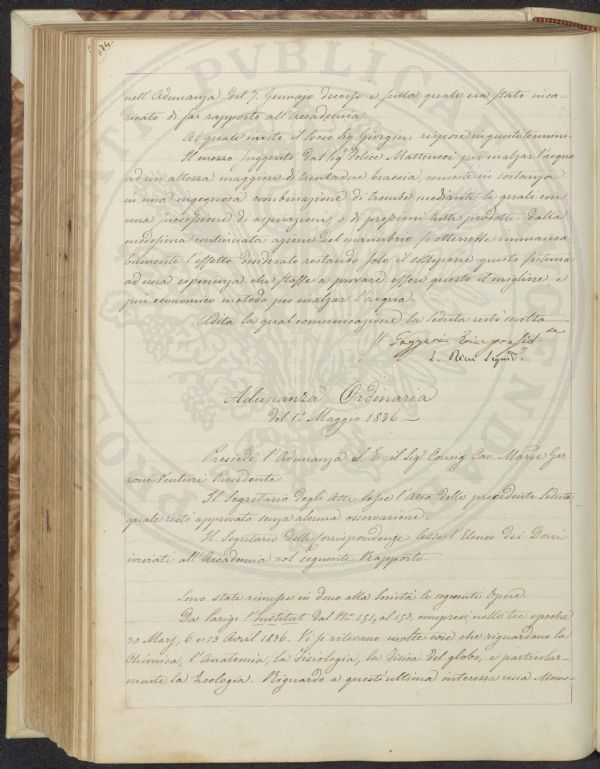 nell'Adunanza del 7. Gennajo decorso e sulla quale era stato inca-
ricato di far rapporto all'Accademia.
Al quale invito il Socio Sig. Giorgini rispose in questi termini.
Il mezzo suggerito dal Sig. Felice Matteucci per inalzar l'acqua
ad un altezza maggiore di trentadue braccia, consiste in sostanza
in una ingegnosa combinazione di trombe mediante le quali con
una successione di aspirazioni, e di pressioni tutte prodotte dalla
modesima continuata azione del manubrio si otterrebbe immanca
bilmente l'effetto desiderato restando solo il esporre questo sistema
ad una esperienza che stasse a provare essere questo il migliore, e
più economico metodo per inalzar l'acqua.
Udita la qual comunicazione la Seduta restò sciolta
Gazzeri Vicepresid.te
L. Rini Segret.
Adunanza Ordinaria
del 1.o Maggio 1836
Presiede l'Adunanza S. E. il Sig. Consig. Cav. March. Gar
zoni Venturi Presidente
Il Segretario degli Atti lesse l'Atto della precedente Seduta
quale restò approvato senza alcuna osservazione.
Il Segretario delle Corrispondenze lesse l'Elenco dei Doni
inviati all'Accademia col seguente Rapporto.
Sono state rimesse in dono alla Società le seguenti Opere.
Da Parigi l'Institut dal N.o 151, al 153, compresi nelle tre epoche
30 Mars, 6 e 13 Avril 1836. Vi si rilevano molte cose che riguardano la
Chimica, l'Anatomia, la Fisiologia, la Fisica del globo, e particolar-
mente la Zoologia. Riguardo a quest'ultima interessa una Memo-
PVBLICAE